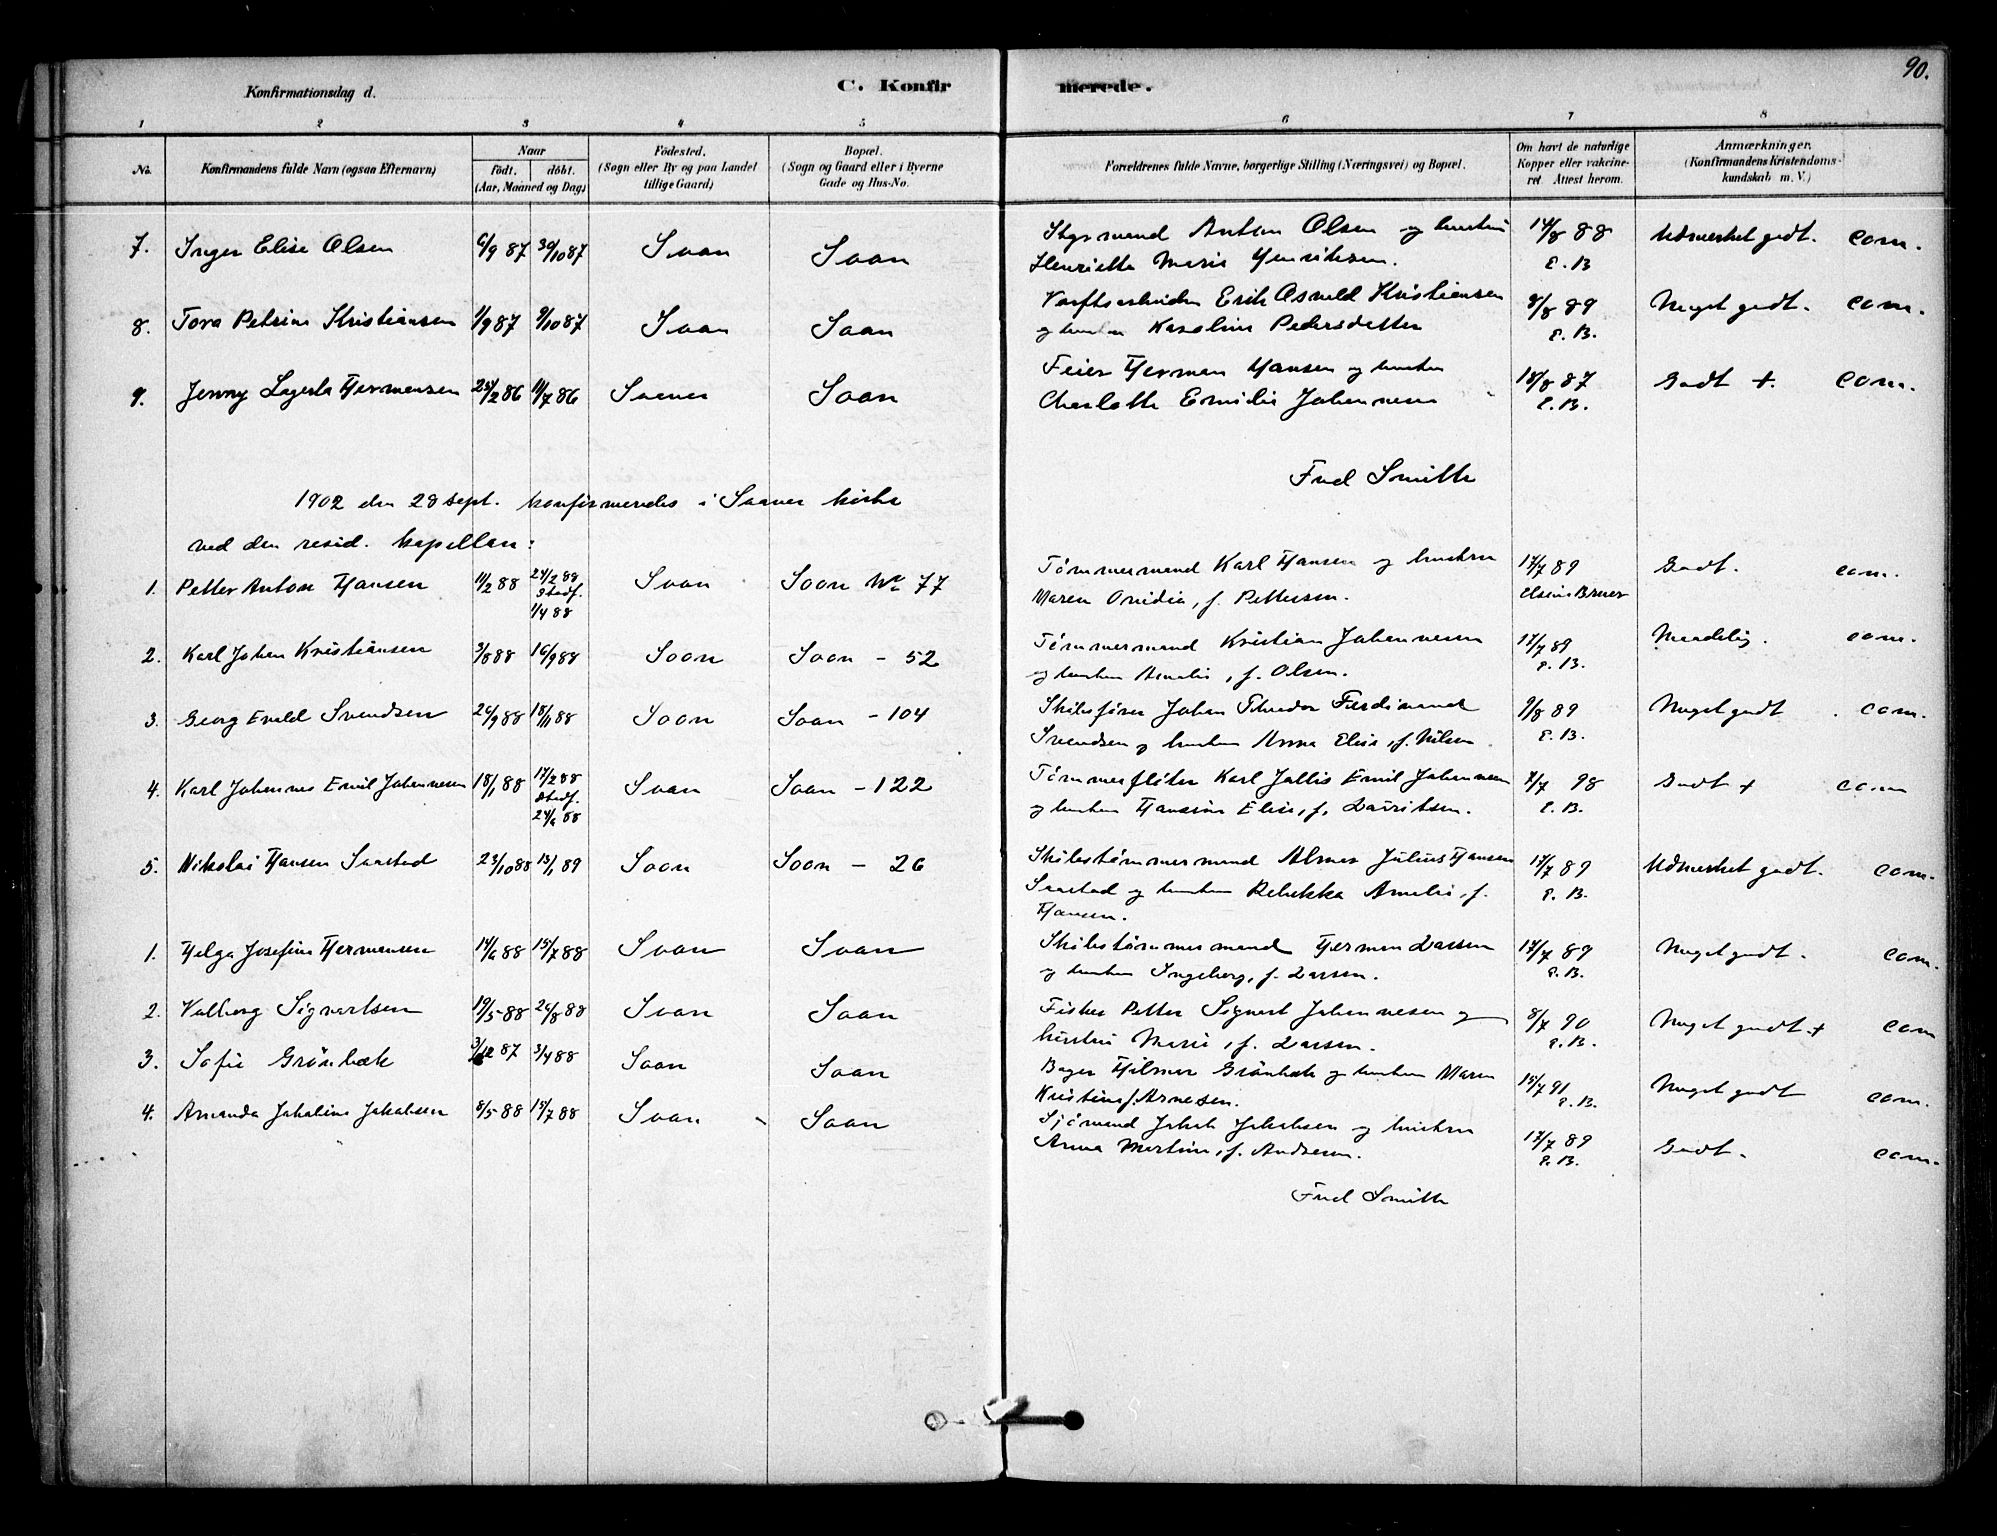 90.
Konfirmationsdag d. C. Konfirmerede.
1 2 3 4 5 6 7 8
No. Konfirmandens fulde Navn (ogsaa Efternavn) Naar født. døbt. (Aar, Maaned og Dag) Fødested. (Sogn eller By og paa Landet tillige Gaard) Bopæl. (Sogn og Gaard eller i Byerne Gade og Hus-No. Forældrenes fulde Navne, borgerlige Stilling (Næringsvei) og Bopæl. Om havt de naturlige Kopper eller vakcineret. Attest herom. Anmærkninger. (Konfirmandens Kristendomskundskab m. V.)
7. Inger Elise Olsen 6/9 87 30/10 87 Soon Soon Styrmand Anton Olsen og hustru 14/8 88 Udmerket godt. com.
Henriette Marie Henriksen. E. B
8. Tora Petrine Kristiansen 1/9 87 9/10 87 Soon Soon Verftsarbeider Erik Osvald Kristiansen 8/8 89 Meget godt. com.
og hustru Karoline Pedersdatter E. B.
9. Jenny Lagerta Hermansen 11/7 86 Saaner Soon Feier Herman Hansen og hustru 18/8 87 Godt +. com.
Charlotte Emilie Johannesen E. B.
Fred Smith
1902 den 28 sept. konfirmeredes i Saaner kirke
ved den resid. kapellan:
1. Petter Anton Hansen 11/2 88 24/2 88 Stadf. 1/4 88 Soon Soon No 77 Tømmermand Karl Hansen og hustru 17/7 89 Godt. com.
Maren Ovidia, f. Pettersen.
2. Karl Johan Kristiansen 3/8 88 16/9 88 Soon Soon - 52 Tømmermand Kristian Johannesen 17/7 89 Maadelig. com.
og hustru Amalie, f. Olsen. E. B.
3. Georg Evald Svendsen 26/9 88 18/11 88 Soon Soon - 104 Skibsfører Johan Theodor Ferdinand 9/8 89 Meget godt. com.
Svendsen og hustru Anna Elise, f. Nilsen. E. B.
4. Karl Johannes Emil Johannesen 18/1 88 17/2 88 Stadf. 24/6 88 Soon Soon - 122 Tømmerfløter Karl Emil Johannesen 7/7 98 Godt + com
og hustru Hansine Elise, f. Lauritsen. E. B.
5. Nikolai Hansen Saastad 23/10 88 13/1 89 Soon Soon - 26 Skibstømmermand Julius Hansen 17/7 89 Udmerket godt. com.
Saastad og hustru Rebekka Amalie, f. E. B.
Hansen.
1. Helga Josefine Hermansen 14/6 88 15/7 88 Soon Soon Skibstømmermand Herman Larsen 17/7 89 Meget godt. com.
og hustru Ingeborg, f. Larsen. E. B.
2. Valborg Sigvartsen 19/5 88 26/8 88 Soon Soon Fisker Petter Sigvart Johannesen og 8/7 90 Meget godt + com
hustru Marie, f. Larsen. E. B.
3. Sofie Grønbæk 3/12 87 3/4 88 Soon Soon Bager Hilmar Grønbæk og hustru Maren 15/7 91 Meget godt com.
Kristine f. Arnesen. E. B.
4. Amanda Jakobine Jakobsen 8/5 88 15/7 88 Soon Soon Sjømand Jakob Jakobsen og hustru 17/7 89 Godt. com.
Anna Martine, f. Andersen. E. B.
Fred Smith